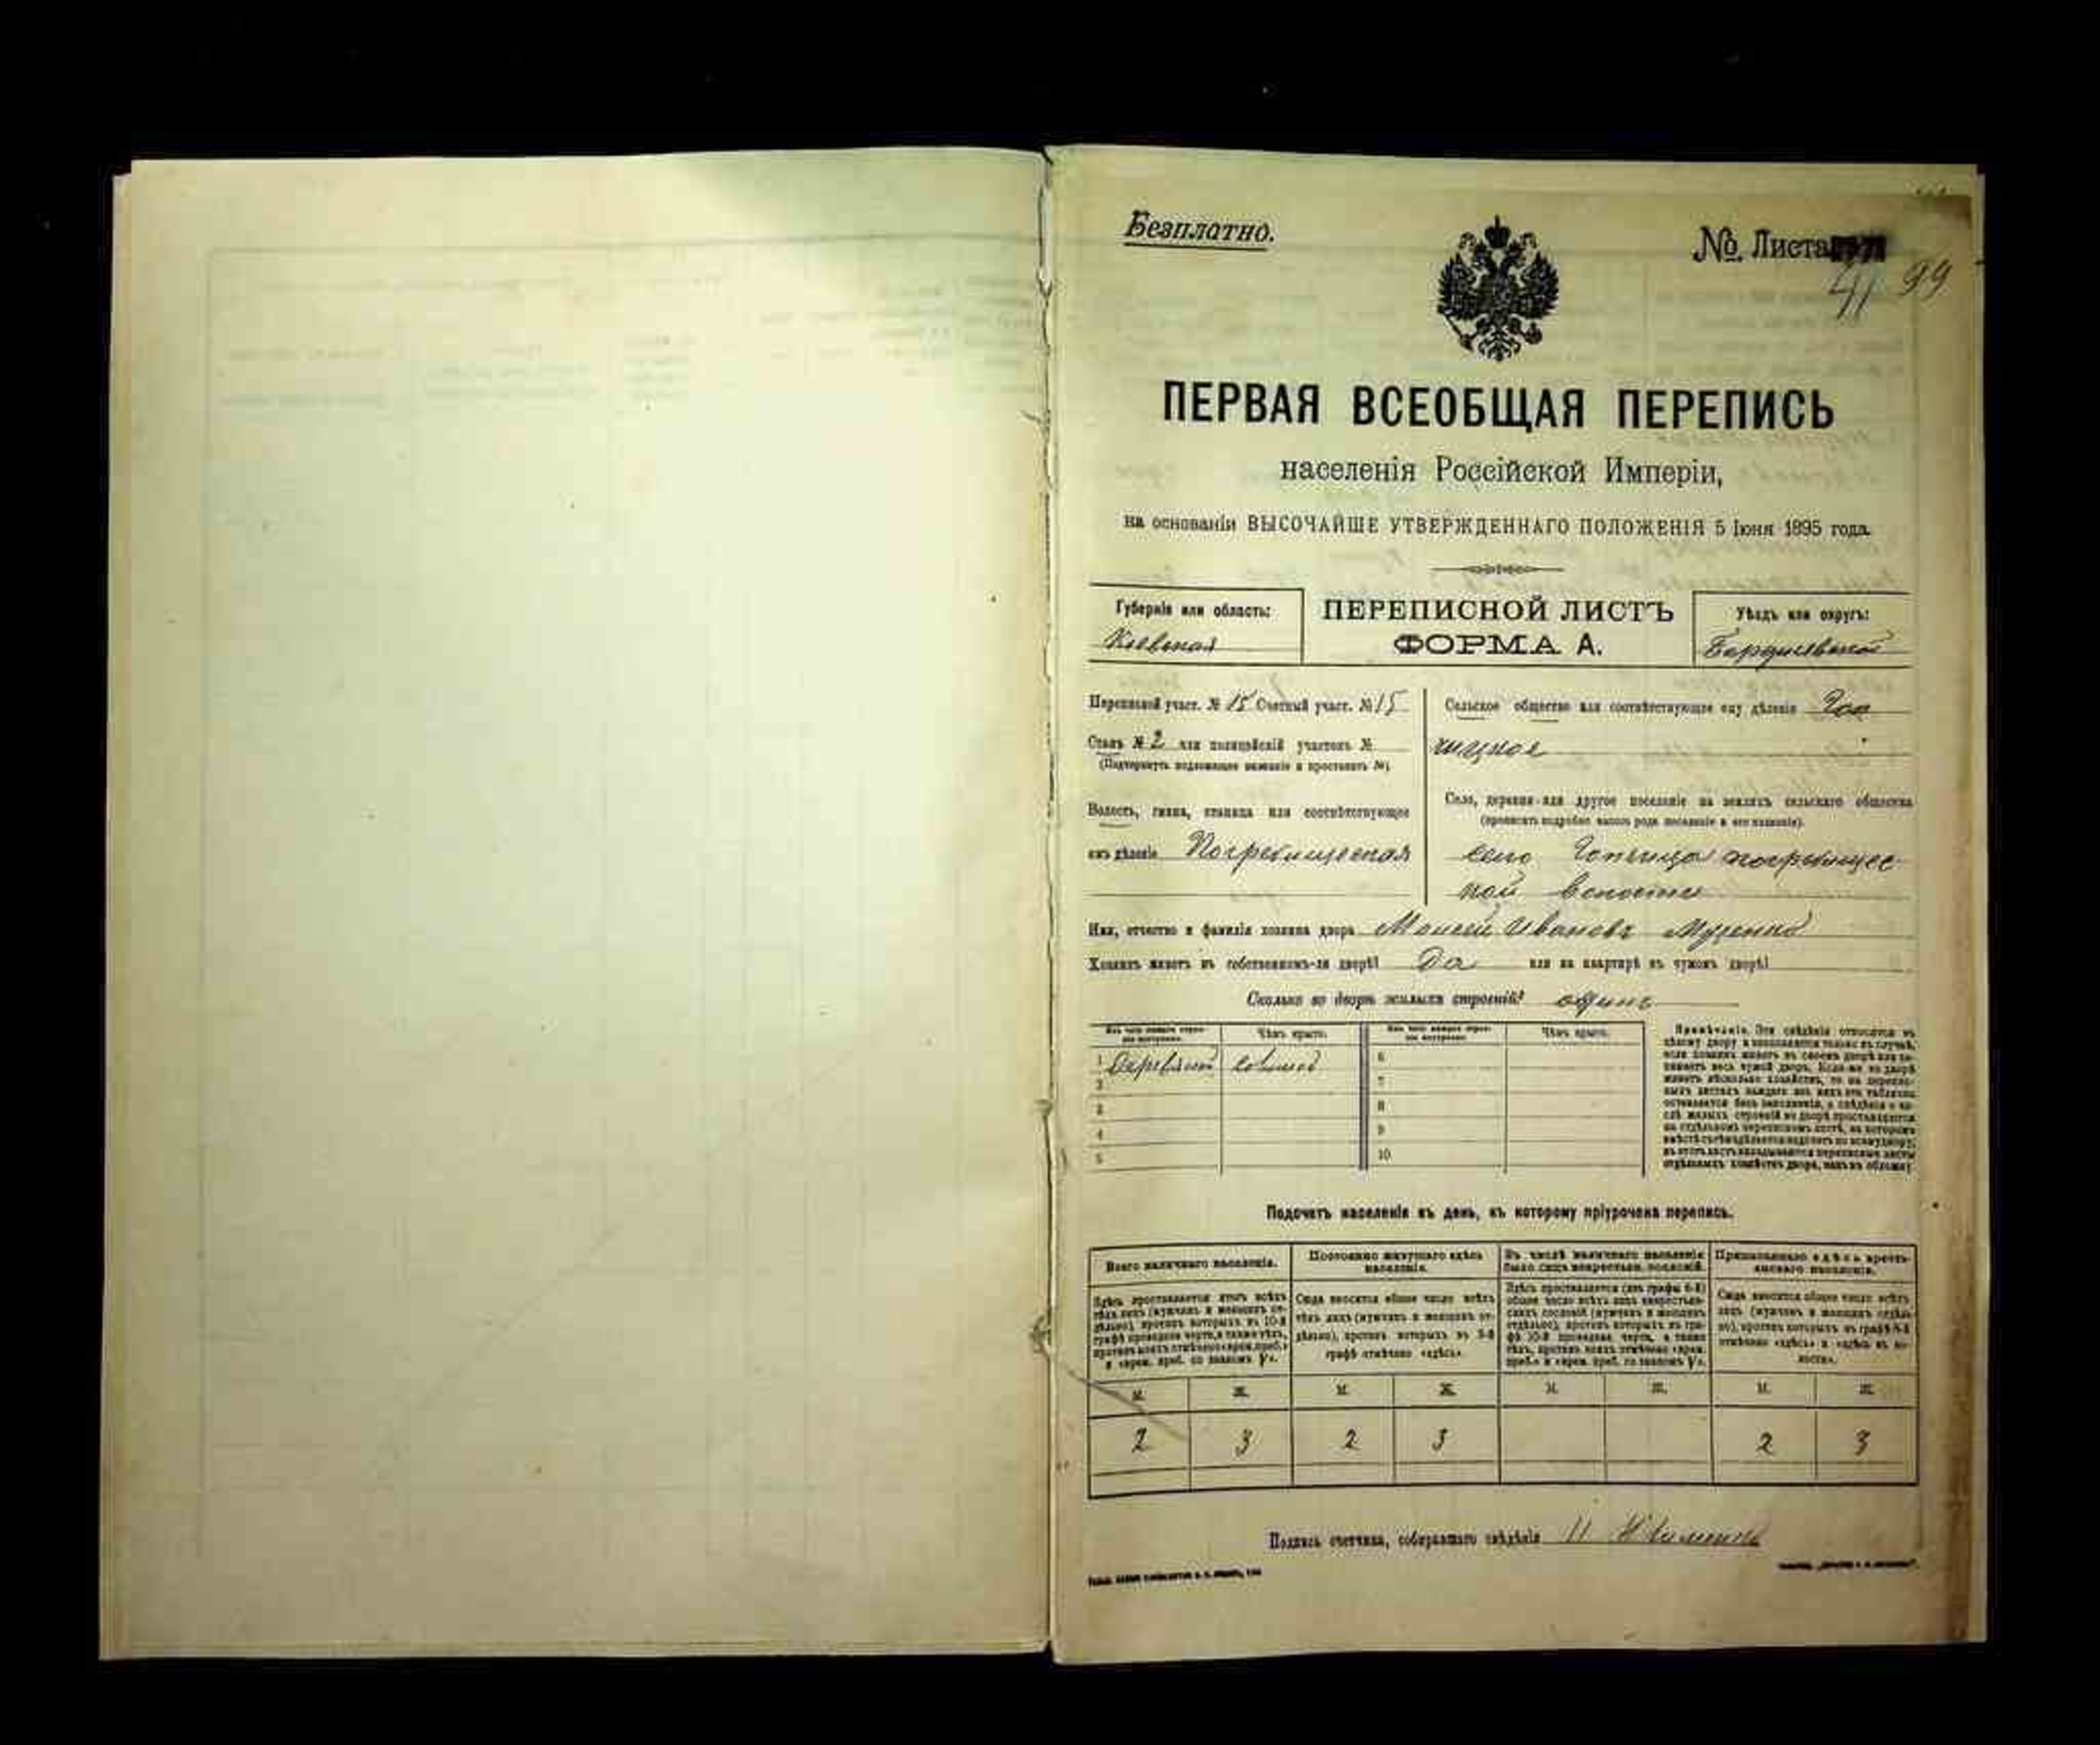 Безплатно.
№ Листа
41 99
ПЕРВАЯ ВСЕОБЩАЯ ПЕРЕПИСЬ
населенія Россійской Имперіи,
на основаніи ВЫСОЧАЙШЕ УТВЕРЖДЕННАГО ПОЛОЖЕНІЯ 5 Іюня 1895 года.
Губернія или область:
Кіевская
ПЕРЕПИСНОЙ ЛИСТЪ
ФОРМА А.
Уѣздъ или округъ:
Бердичевскій
Переписной участ. № 15 Счетный участ. № 15
Станъ № 2 или полицейскій участокъ №
(Подчеркнуть подлежащее названіе и проставить №).
Волость, гмина, станица или соотвѣтствующее
имъ дѣленіе Погребищенская
Сельское общество или соотвѣтствующее ему дѣленіе Гоп
чицкое
Село, деревня или другое поселеніе на земляхъ сельскаго общества
(прописать подробно какого рода поселеніе и его названіе).
село Гопчица погребищес
кой волости
Имя, отчество и фамилія хозяина двора Моисей Ивановъ
Хозяинъ живетъ въ собственномъ-ли дворѣ? Да или на квартирѣ въ чужомъ дворѣ?
Сколько во дворѣ жилыхъ строеній? одинъ
Изъ чего каждое строе-
ніе построено.
Чѣмъ крыто.
Изъ чего каждое строе-
ніе построено.
Чѣмъ крыто.
1 соломой 6
2 7
3 8
4 9
5 10
Примѣчаніе. Эти свѣдѣнія относятся къ
цѣлому двору и заполняются только въ случаѣ,
если хозяинъ живетъ въ своемъ дворѣ или за-
нимаетъ весь чужой дворъ. Если же во дворѣ
живетъ нѣсколько хозяйствъ, то на перепис-
ныхъ листахъ каждаго изъ нихъ эта табличка
оставляется безъ заполненія, а свѣдѣнія о чи-
слѣ жилыхъ строеній во дворѣ проставляются
на отдѣльномъ переписномъ листѣ, на которомъ
въ этотъ листъ вкладываются переписные листы
отдѣльныхъ хозяйствъ двора, какъ въ обложку.
Подсчетъ населенія въ день, къ которому пріурочена перепись.
Всего наличнаго населенія.
Постоянно живущаго здѣсь
населенія.
Въ числѣ наличнаго населенія
было лицъ некрестьян. сословій.
Приписаннаго здѣсь кресть-
янскаго населенія.
Здѣсь проставляется итогъ всѣхъ
тѣхъ лицъ (мужчинъ и женщинъ от-
дѣльно), противъ которыхъ въ 10-й
графѣ проведена черта, а также тѣхъ,
противъ коихъ отмѣчено «врем. преб.»
Сюда вносится общее число всѣхъ
тѣхъ лицъ (мужчинъ и женщинъ от-
дѣльно), противъ которыхъ въ 9-й
графѣ отмѣчено «здѣсь».
Здѣсь проставляется (изъ графы 6-й)
общее число всѣхъ лицъ некрестьян-
скихъ сословій (мужчинъ и женщинъ
отдѣльно), противъ которыхъ въ гра-
фѣ 10-й проведена черта, а также
тѣхъ, противъ коихъ отмѣчено «врем.
Сюда вносится общее число всѣхъ
лицъ (мужчинъ и женщинъ отдѣль-
но), противъ которыхъ въ графѣ 8-й
отмѣчено «здѣсь» и «здѣсь въ во-
лости».
М. Ж. М. Ж. М. Ж. М. Ж.
2 3 2 3 2 3
Подпись счетчика, собиравшаго свѣдѣнія